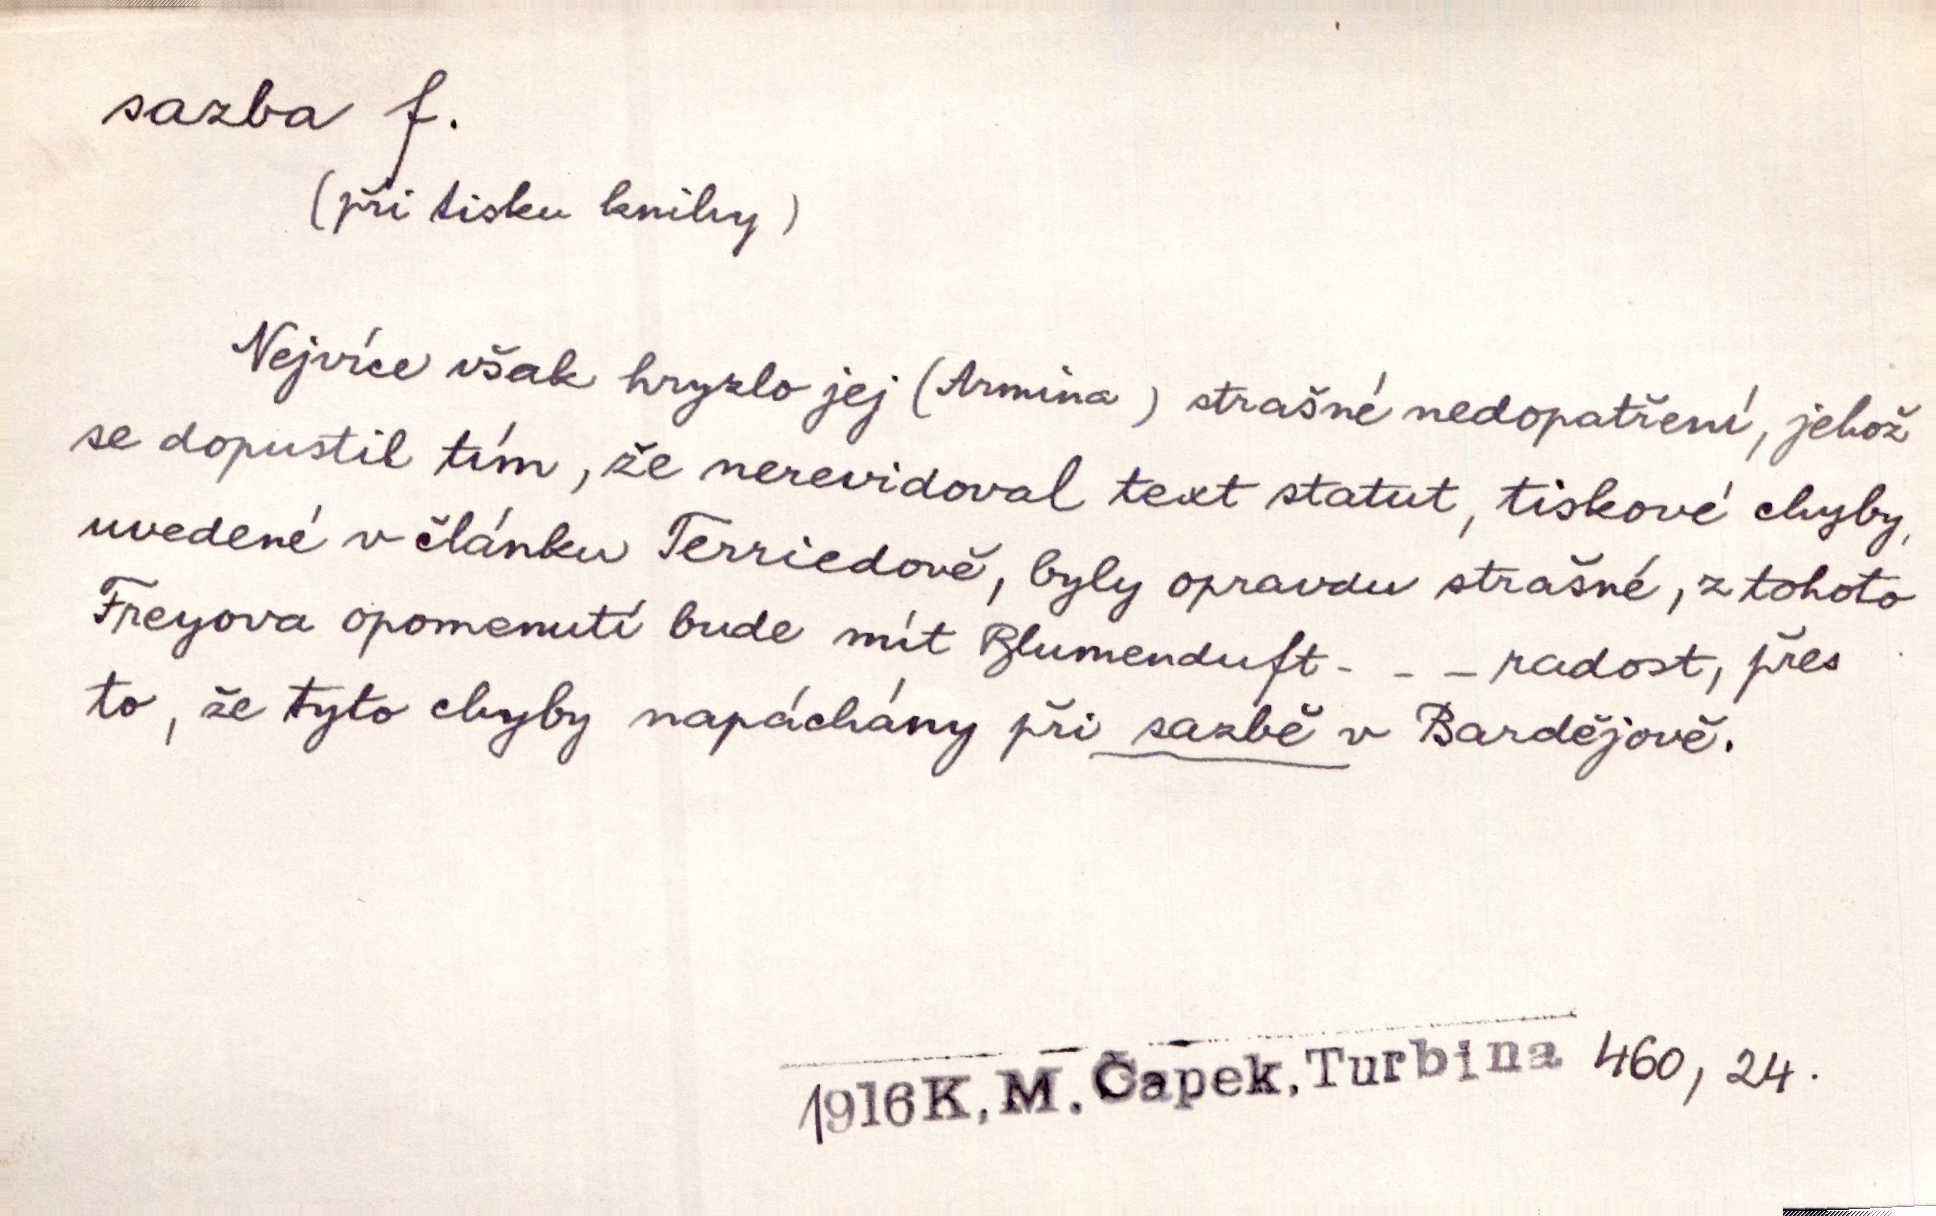 sazba f.
(při tisku knihy)
Nejvíce však hryzlo jej (Armina) strašné nedopatření, jehož
se dopustil tím, že nerevidoval text statut, tiskové chyby,
uvedené v článku Terriedově, byly opravdu strašné, z tohoto
Freyova opomenutí bude mít Blumenduft - - - radost, přes
to, že tyto chyby napáchány při sazbě v Bardějově.
1916 K. M. Čapek, Turbina 460, 24.